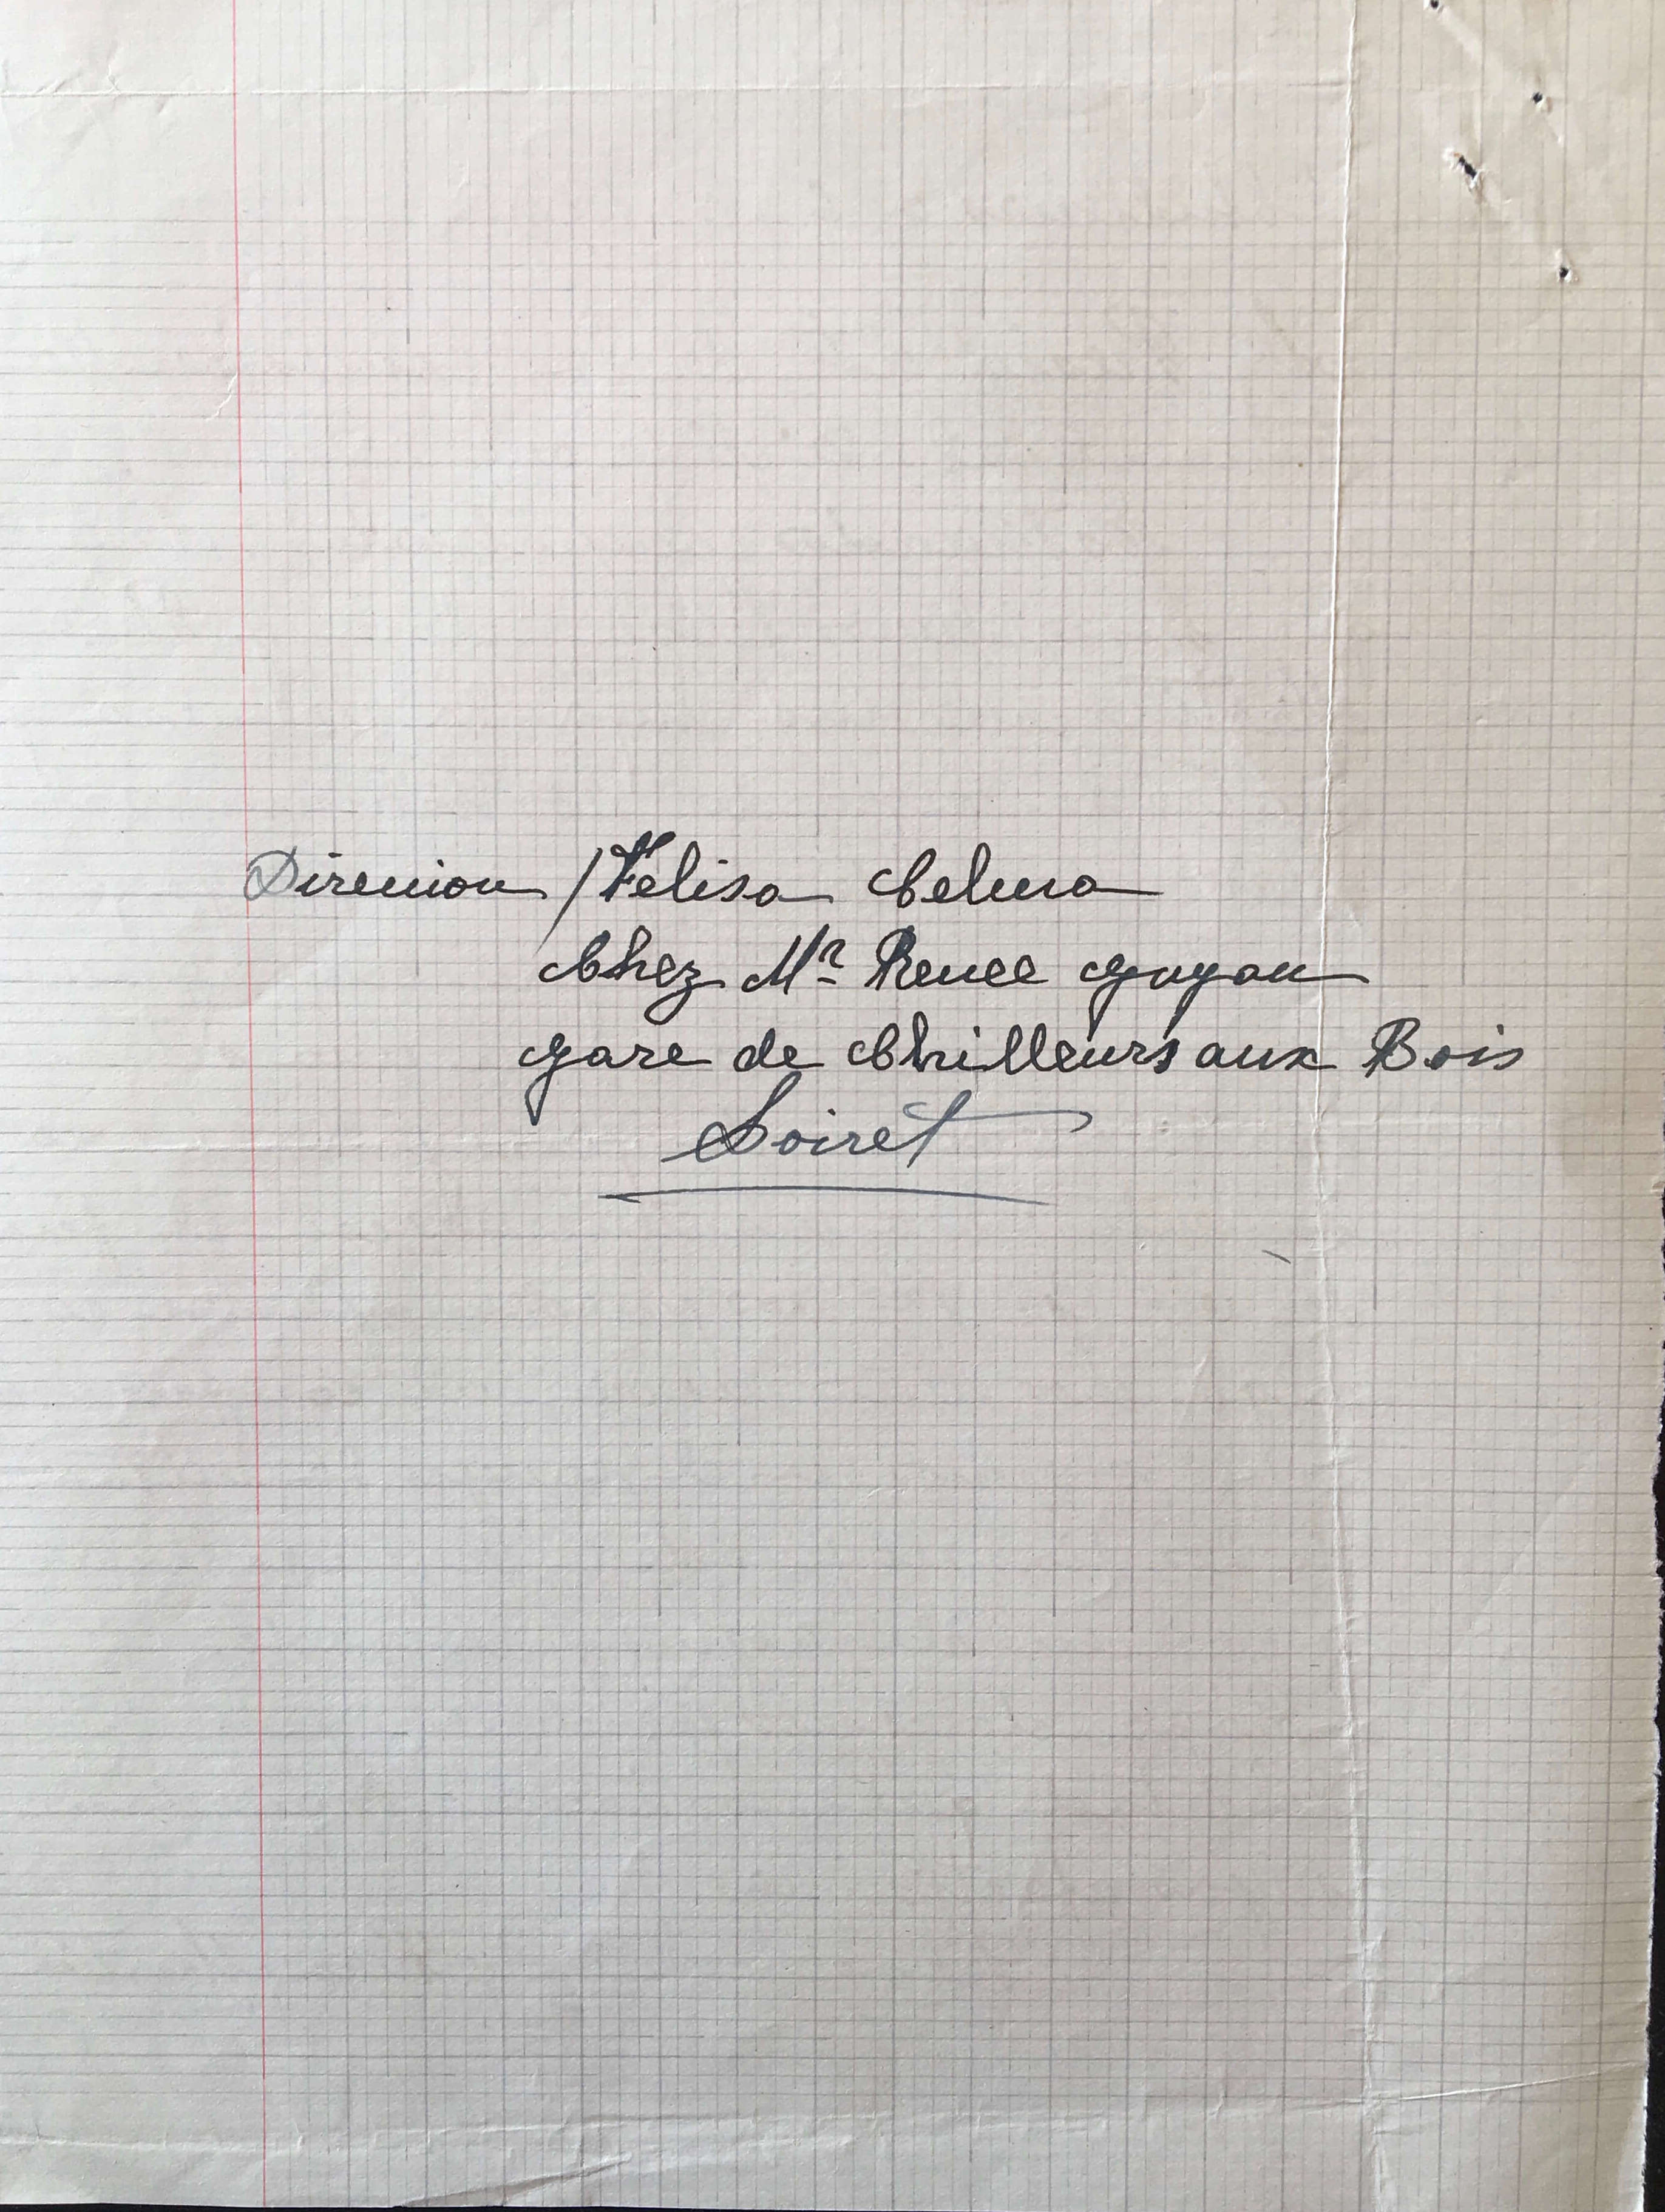 Direccion / Felisa Celma
Chez Mr Renee
gare de Chilleurs aux Bois
Loiret